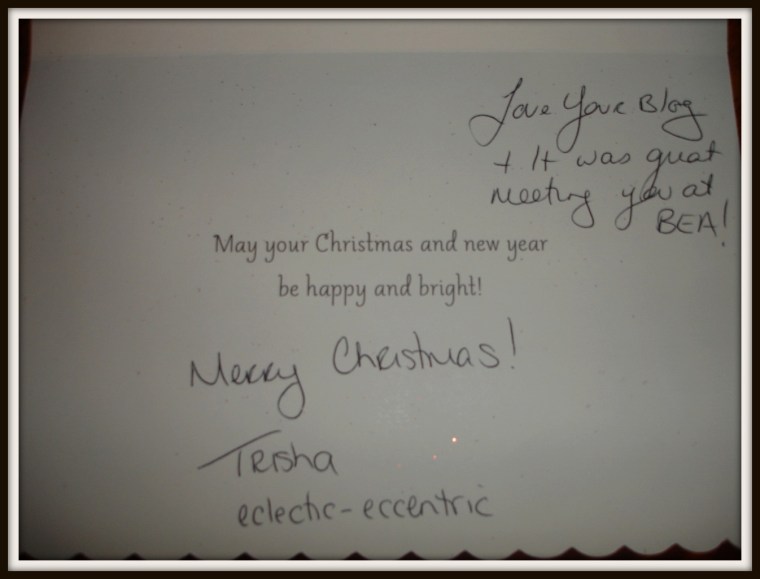 Love Your Blog
+ It was great
meeting you at
BEA!
May your Christmas and new year
be happy and bright!
Merry Christmas!
Trisha
eclectic-eccentric